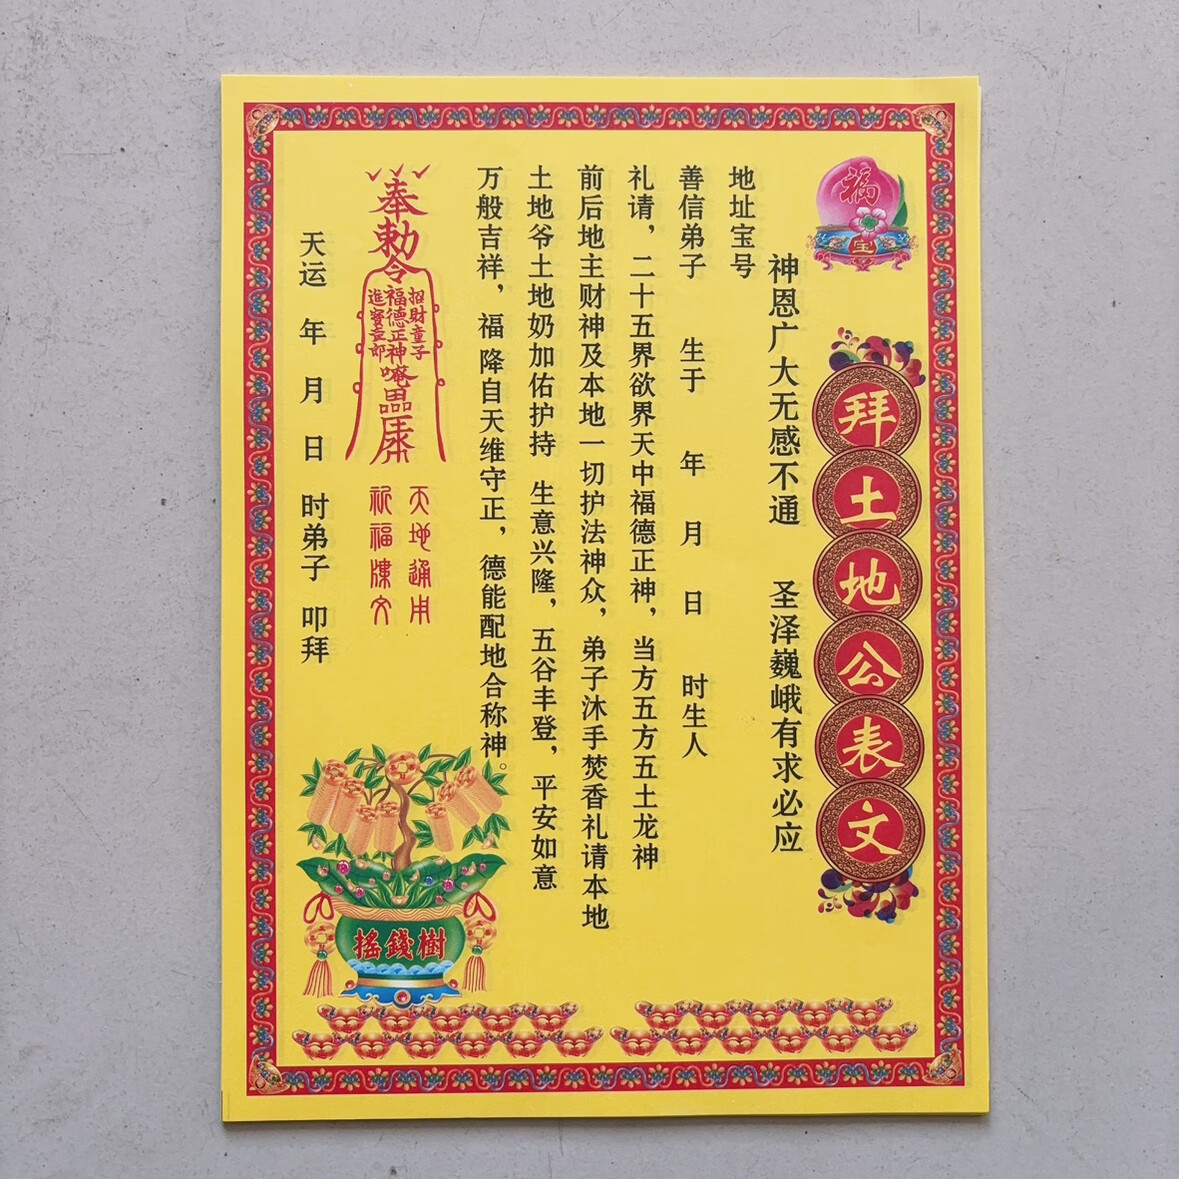 福
宝
拜土地公表文
神恩广大无感不通 圣泽巍峨有求必应
地址宝号
善信弟子 生于 年 月 日 时生人
礼请，二十五界欲界天中福德正神，当方五方五土龙神
前后地主财神及本地一切护法神众，弟子沐手焚香礼请本地
土地爷土地奶加佑护持 生意兴隆，五谷丰登，平安如意
万般吉祥，福降自天维守正，德能配地合称神。
奉勅令
招財童子
福德正神
天地通用
祈福
天运 年 月 日 时弟子 叩拜
搖錢樹